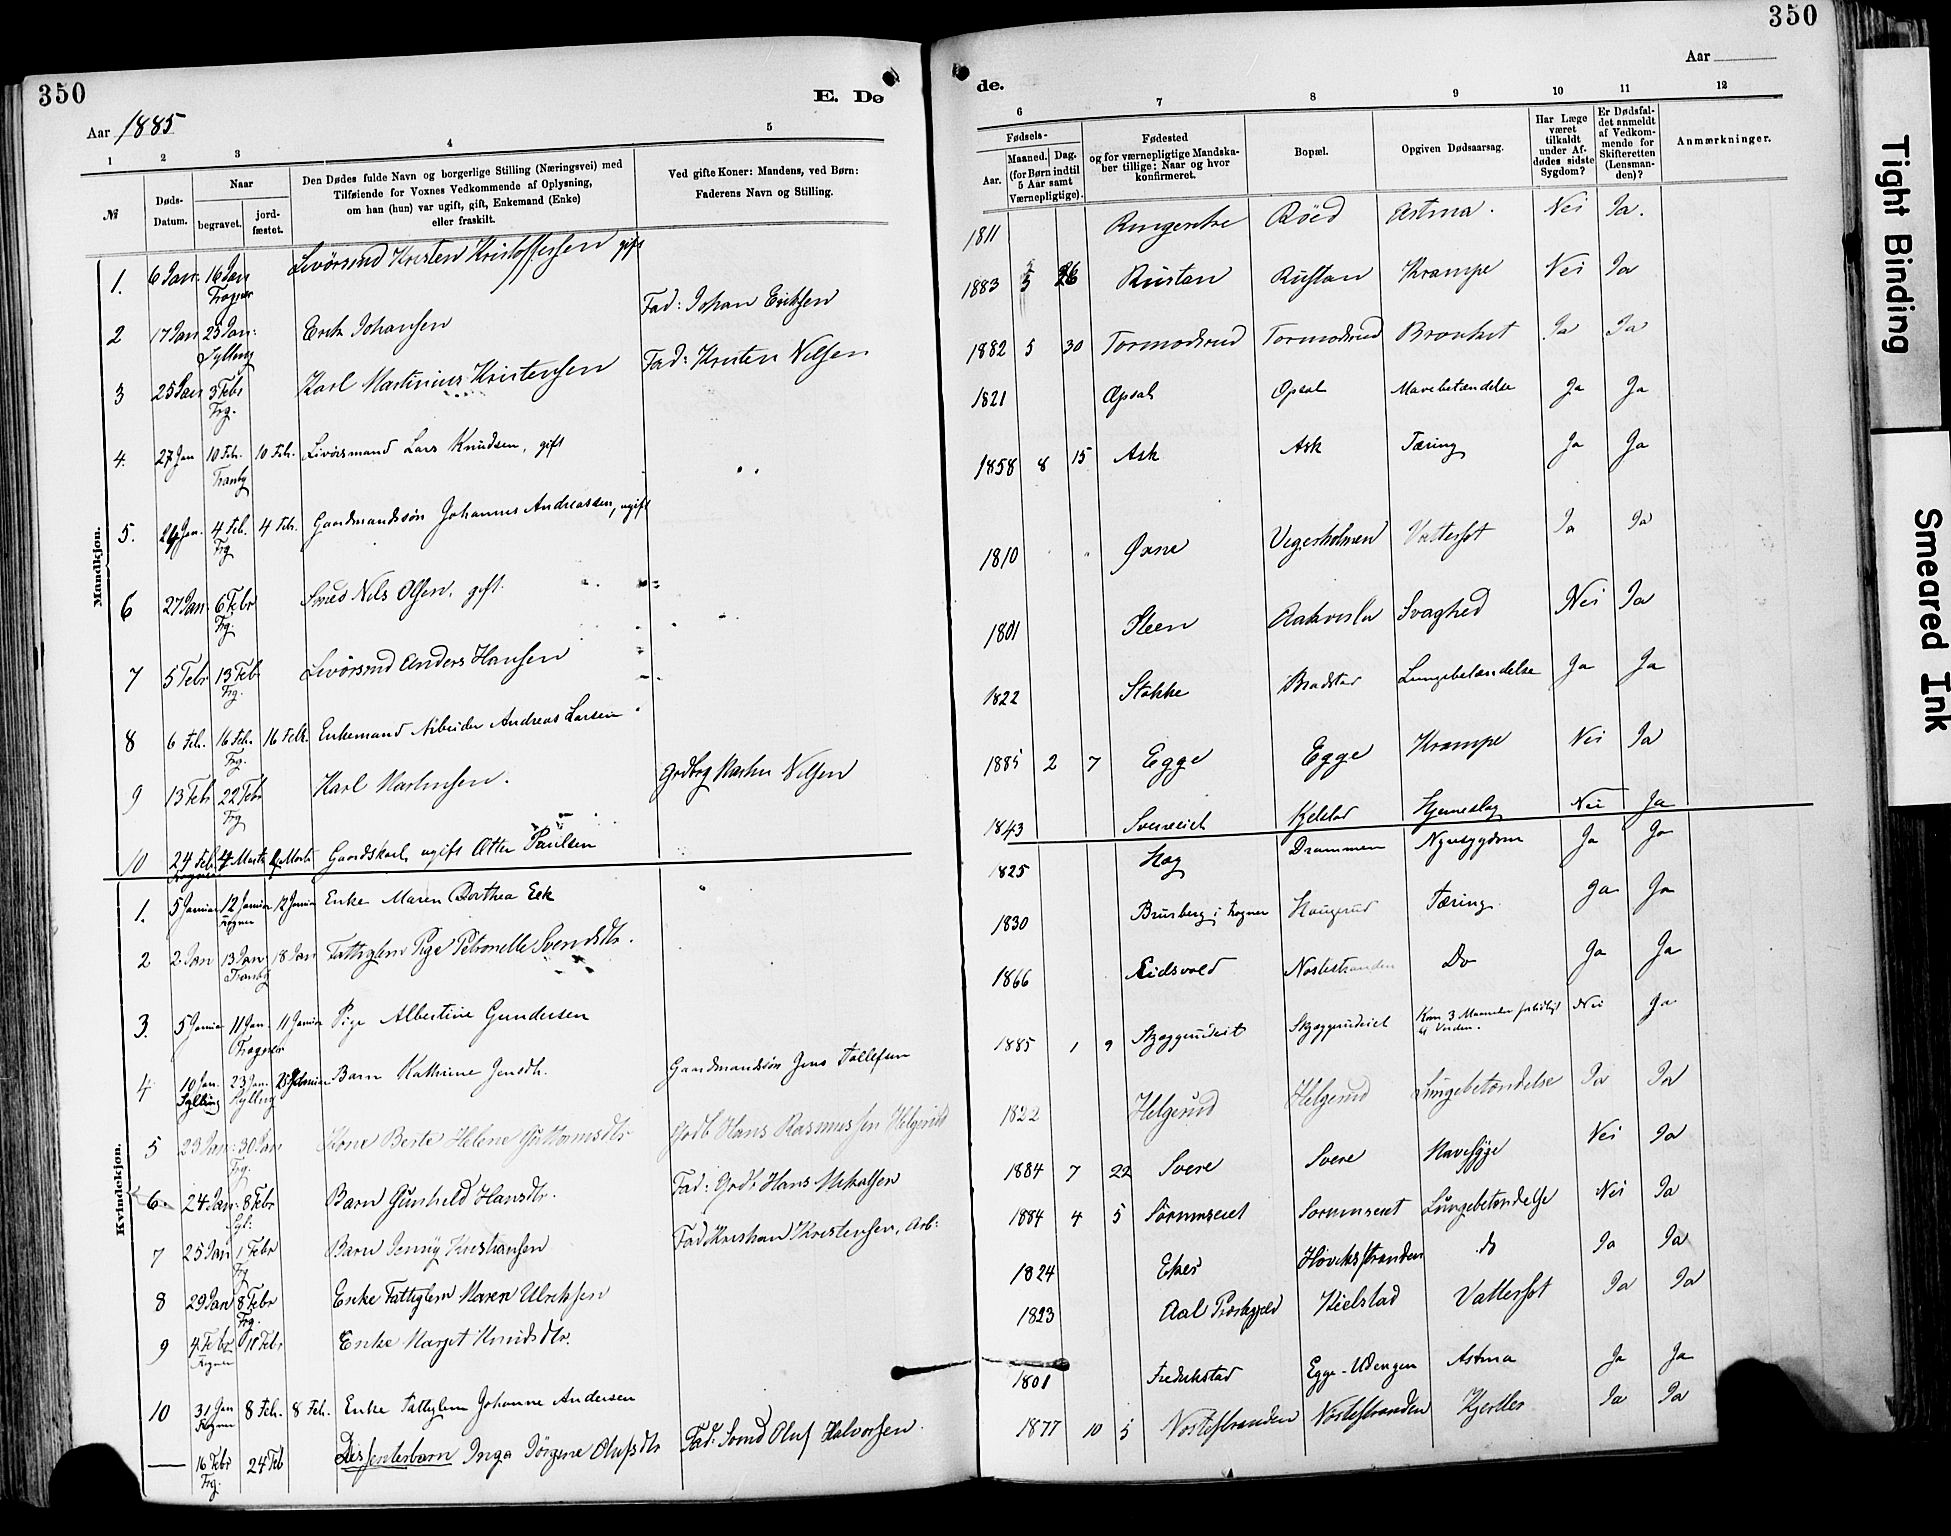 350
350
Aar 1885
E. Dø
de.
Aar
1 2 3 4 5
6 7 8 9 10 11 12
№
Døds-Datum.
Naar
begravet.
jord-fæstet.
Den Dødes fulde Navn og borgerlige Stilling (Næringsvei) med
Tilføiende for Voxnes Vedkommende af Oplysning,
om han (hun) var ugift, gift, Enkemand (Enke)
eller fraskilt.
Ved gifte Koner: Mandens, ved Børn:
Faderens Navn og Stilling.
Fødsels-
Aar.
Maaned. Dag.
(for Børn indtil
5 Aar samt
Værnepligtige).
Fødested
og for værnepligtige Mandska-
ber tillige: Naar og hvor
konfirmeret.
Bopæl.
Opgiven Dødsaarsag.
Har Læge
været
tilkaldt
under Af-
dødes sidste
Sygdom?
Er Dødsfal-
det anmeldt
af Vedkom-
mende for
Skifteretten
(Lensman-
den)?
Anmærkninger.
Mandkjøn.
1. 6 Jan: 16 Jan Frogner Kristen Kristoffersen gift
2 17 Jan 25 Jan: Sylling Erik Johansen Fad: Johan Eriksen
3 25 Jan 3 Febr Frg. Karl Martinius Kristensen Fad: Kristen Nilsen
4. 27 Jan 10 Feb. Tranby 10 Feb. Livörsmand Lars Knudsen, gift
5. 4 Feb. Frg 4 Feb. Gaardmandssøn Johannes Andreassen, ugift
6 27 Jan. 6 Febr Frg. Nils Olsen, gift.
7 5 Febr 13 Feb Frg. Anders Hansen
8 6 Feb. 16 Feb. Frg. 16 Febr. Enkemand Arbeider Andreas Larsen
9 13 Feb 22 Febr Frg Karl Martinsen. Martin Nilsen
10 24 Feb 4 Marts Marts Gaardskarl, ugift Otter Paulsen
Kvindekjøn.
1. 5 Januar 12 Januar Frogner 12 Januar Enke Maren Dorthea Eek
2 2 Jan 13 Jan Tranby 18 Jan Fattiglem Pige Petronelle Svendsdtr.
3. 5 Januar 11 Jan. Frogner 11 Januar Pige Albertine Gundersen
4 10 Jan. Sylling 23 Jan. Sylling Barn Kathrine Jensdtr. Gaardmandssøn Jens Tollefsen
5 23 Jan: 30 Jan Frg. Kone Berte Helene Guttormsdtr Grdb Hans Rasmussen Helgerud
6. 24 Jan: 8 Febr Syl: Barn Gunhild Hansdtr. Fad: Grdb Hans Mikalsen
7 25 Jan 1 Febr Frg Barn Jenny Kristiansen Fad Kristian Kristensen, Arb:
8 29 Jan 8 Febr Frg. Enke Fattiglem Maren Ulriksen
9 4 Febr Frogner 11 Febr Enke Marget Knudsdtr.
10 31 Jan Frogner 8 Feb. 8 Feb. Enke Fattiglem Johanne Andersen
— 16 Febr Frg. 24 Feb Dissenterbarn Inga Jörgine Olufsdtr Fad: Oluf Halvorsen.
1811 Ringerike Röed Astma. Nei Ja.
1883 5 26 Rustan Rustan Krampe Nei Ja
1882 5 30 Tormodsrud Tormodsrud Bronkit Ja Ja
1821 Opsal Opsal Mavebetændelse Ja Ja
1858 8 15 Ask Ask Tæring Ja Ja
1810 Øxne Vegersholmen Vattersot Ja Ja
1801 Steen Svaghed Nei Ja
1822 Stokke Lungebetændelse Ja Ja
1885 2 7 Egge Egge Krampe Nei Ja
1843 Kjelstad Hjerneslag Nei Ja
1825 Hag Drammen Nyresygdom Ja Ja
1830 Brusberg i Frogner Haugerud Tæring Ja Ja
1866 Eidsvold Nostestranden Do Ja Ja
1885 1 9 Skjæggerudeiet Skjæggerudeiet Kom 3 Maaneder for tidligt til Verden. Nei Ja
1822 Helgerud Helgerud Lungebetændelse Ja Ja
1884 7 22 Svere Svere Mavesyge Nei Ja
1884 4 5 Sörumseiet Sorumseiet Lungebetændelse Nei Ja
1824 Eker Hoviksstranden do Ja Ja
1823 Aal Præstegjeld Kielstad Vattersot Ja Ja
1801 Fredrikstad Egge-Udengen Astma Ja Ja
1877 10 5 Nostestranden Nostestranden Kjertler Ja Ja
Tight Binding
Smeared Ink